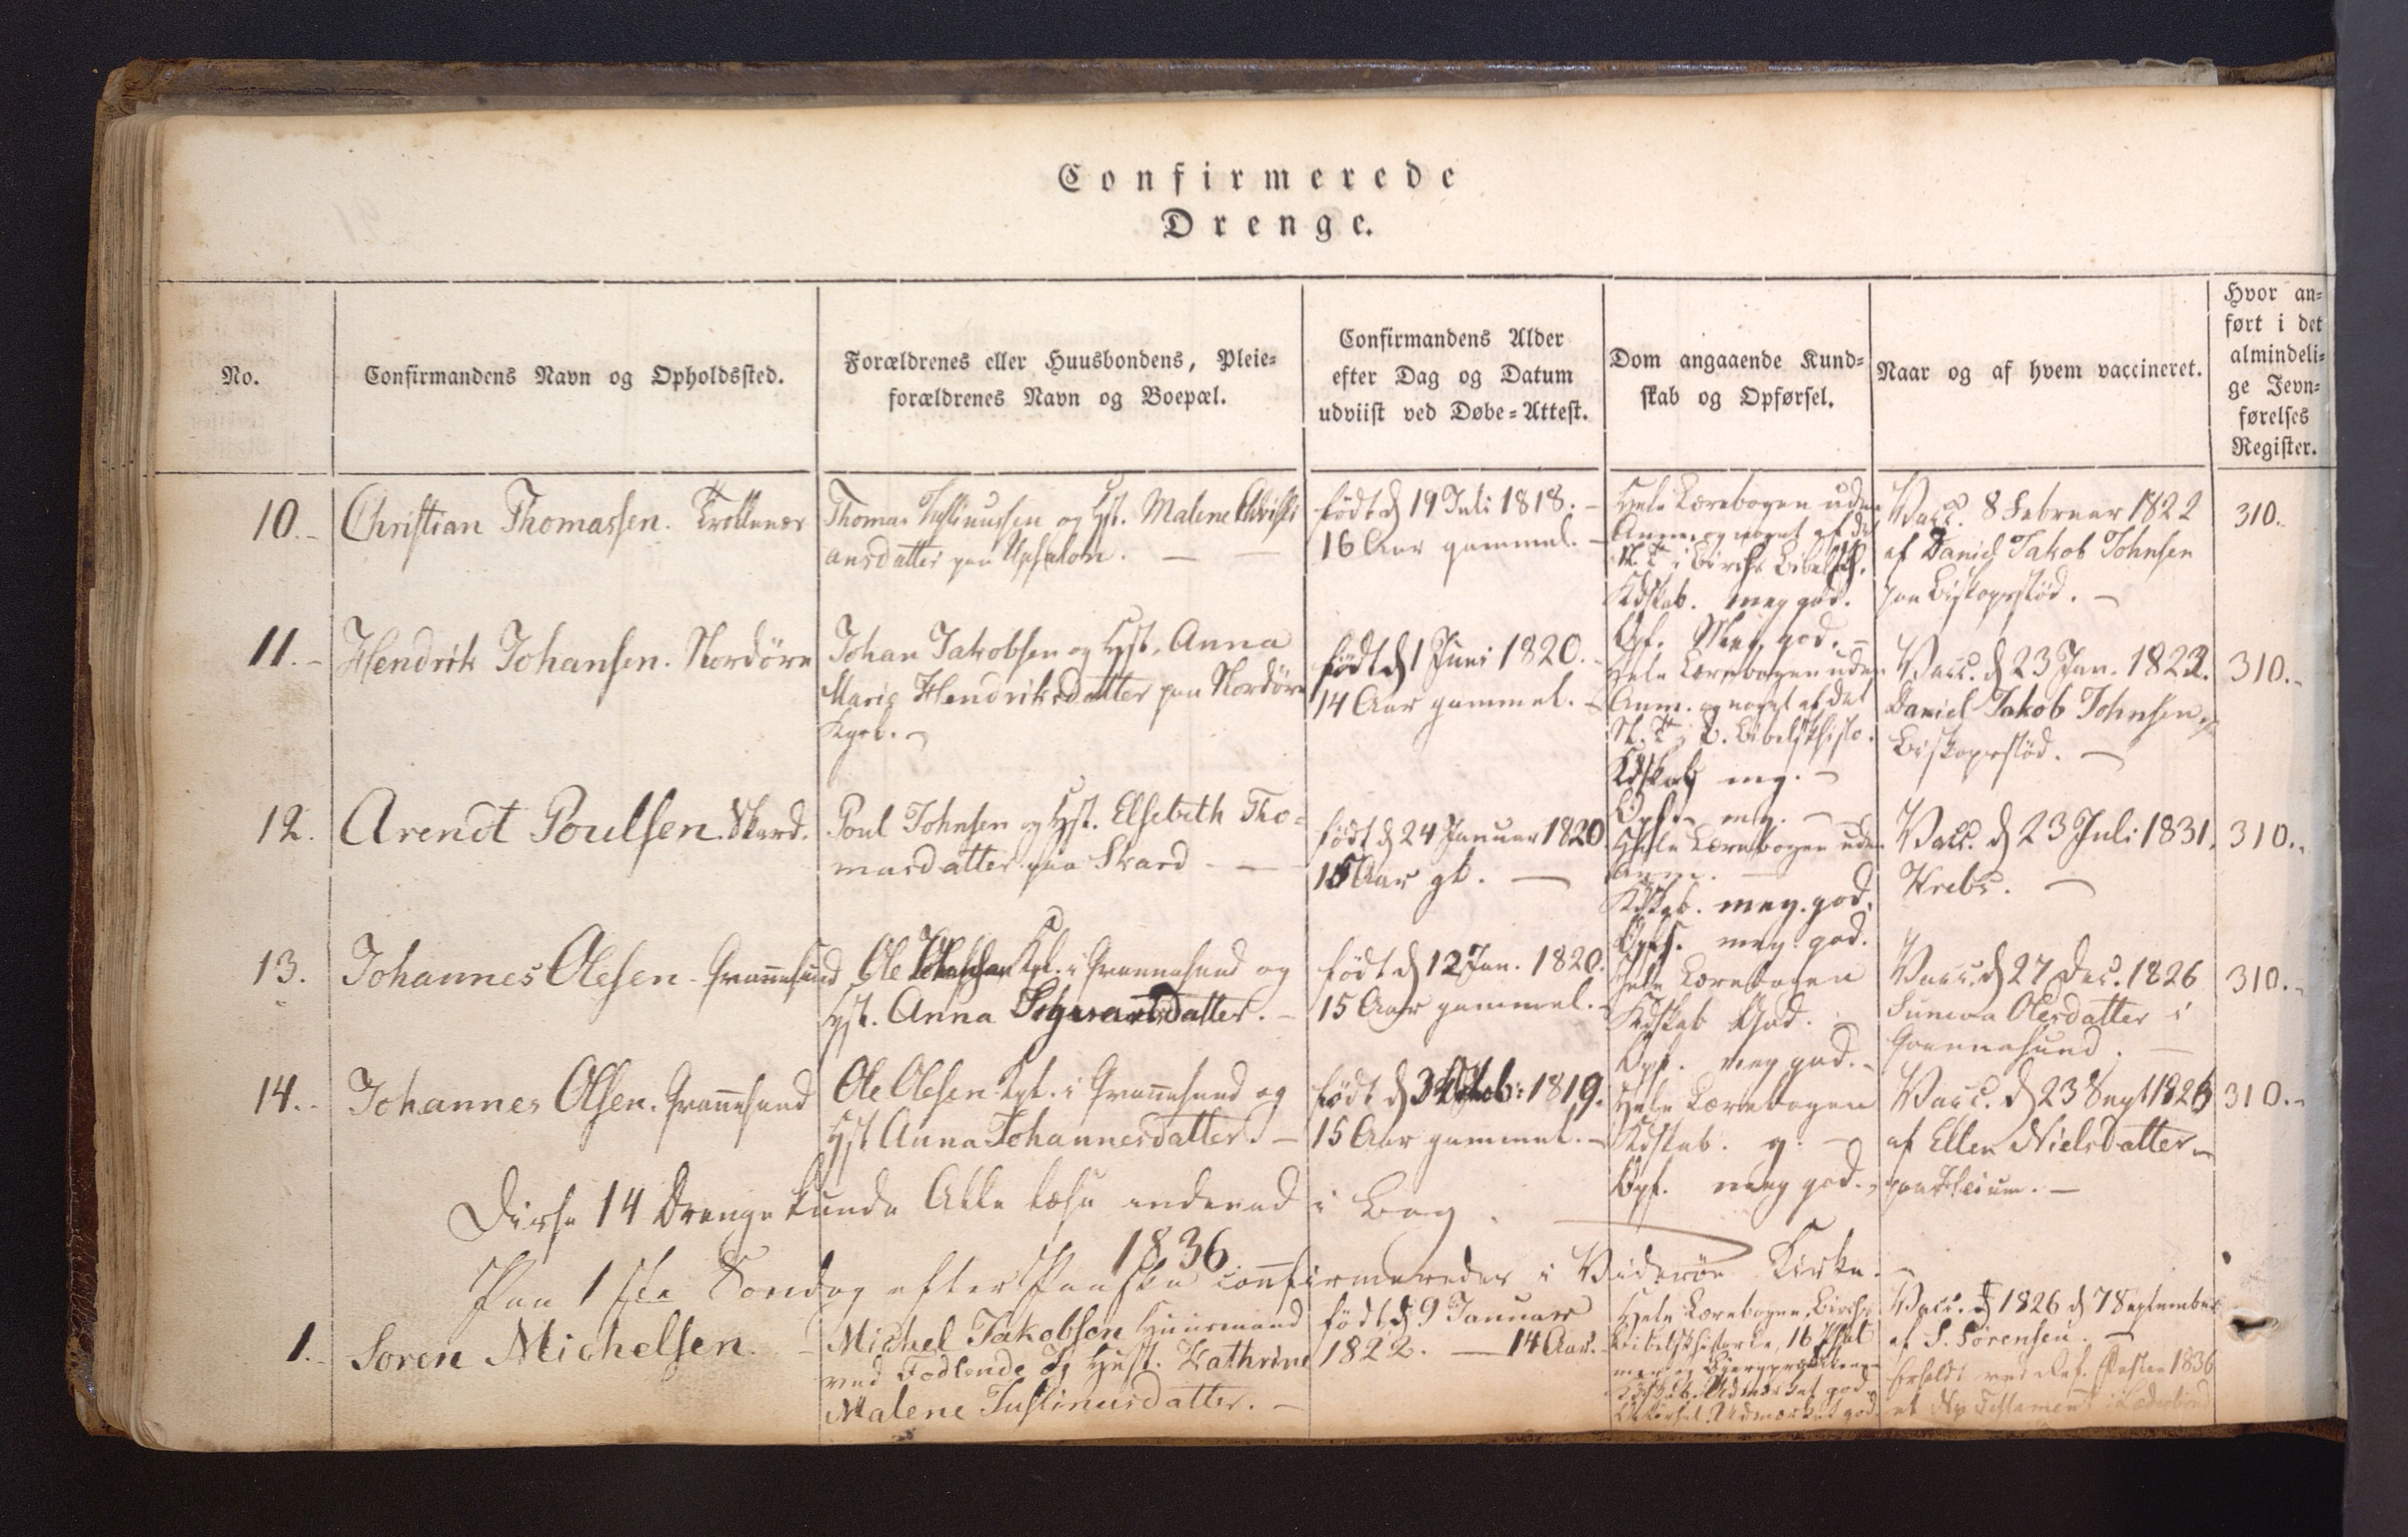 Confirmerede
Drenge.
No.
Confirmandens Navn og Opholdssted.
Forældrenes eller Huusbondens, Pleie=
forældrenes Navn og Boepæl.
Confirmandens Alder
efter Dag og Datum
udviist ved Døbe=Attest.
Dom angaaende Kund=
skab og Opførsel.
Naar og af hvem vaccineret.
Hvor an=
ført i det
almindeli=
ge Jevn=
førelses
Register.
10.-
Christian Thomassen. Trøllenæs
Thomas Justinussen og Hst. Malene Christi
ansdatter paa
født d 19 Juli 1818.-
16 Aar gammel.-
Hele Lærebogen uden
Anm. og noget af det
N. T. i Birchs Bibelsh.
Kdskab. meg god.
Opf. Meg. god.-
Vacc. 8 Februar 1822
af Daniel Jakob Johnsen
paa Biskopsstød.-
310.
11.-
Hendrik Johansen. Nordøre
Johan Jakobsen og Hst. Anna
Marie Hendriksdatter paa Nordøre
født d 1 Juni 1820.-
14 Aar gammel.-
Hele Lærebogen uden
Anm. og noget af det
N. T. i B. Bibelskhisto.
Kdskab mg.-
Opf. mg.-
Vacc. d 23 Jan. 1822.
Daniel Jakob Johnsen
Biskopsstød.-
310.-
12.
Arendt Poulsen. Skard.
Poul Johnsen og Hst. Elsebeth Tho=
masdatter paa Skard
født d 24 Januar 1820
15 Aar gl.-
Hele Lærebogen uden
Anm.
Kdskab. meg. god.
Opfs. meg. god.
Vacc. d 23 Juli 1831.
Krebs.-
310.-
13.
Johannes Olesen. Qvannesund
Ole i Qvannesund og
Hst. Anna
født d 12 Jan. 1820.
15 Aar gammel.-
Hele Lærebogen
Kdskab God.
Opf. meg god.-
Vacc. d 27 Dec. 1826
Sunneva Olesdatter i
Qvannesund.-
310.-
14.-
Johannes Olsen. Qvannesund
Ole Olesen i Qvannesund og
Hst Anna Johannesdatter.-
født d Octob: 1819.
15 Aar gammel.-
Hele Lærebogen
Kdskab. g.-
Opf. meg god.-
Vacc. d 23 Sept 1826
af Ellen Nielsdatter
310.-
Disse 14 Drenge kunde Alle læse indenad i Bog.
1836
Paa 1ste Søndag efter Paaske confirmeredes i Viderøe Kirke.-
1.-
Soren Michelsen.
Michel Jakobsen Huusmand
ved Fodlende og Hust. Kathrine
Malene Justinusdatter.-
født d 9 Januar
1822. - 14 Aar.-
Hele Lærebogen, Birchs
Bibelskhistorie, 16 Psal
mer og
Kdskab. Udmærket god
Udmærket god
Vacc. 1826 d 7 September
af S. Sørensen.-
erholdt ved 1836
et Ny Testament i Læderbind